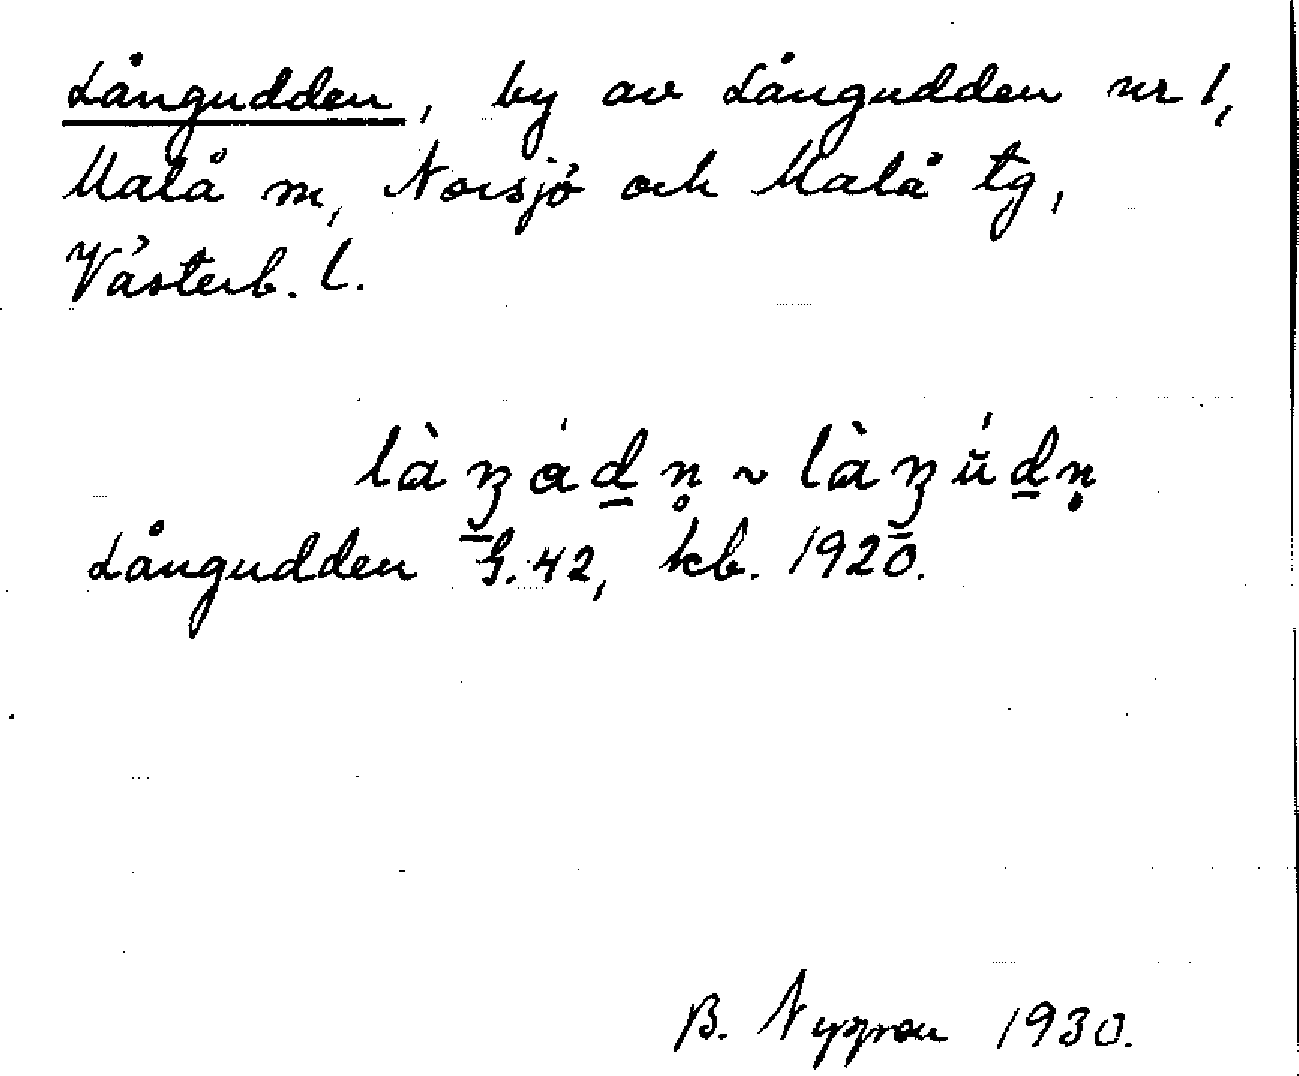 Långudden, by av Långudden nr 1,
Malå m, Norsjö och Malå tg,
Västerb. l.
làŋád̲n̥ ~ làŋŭ́d̲ṇ
Långudden G. 42, kb. 1920.
B. Nygren 1930.